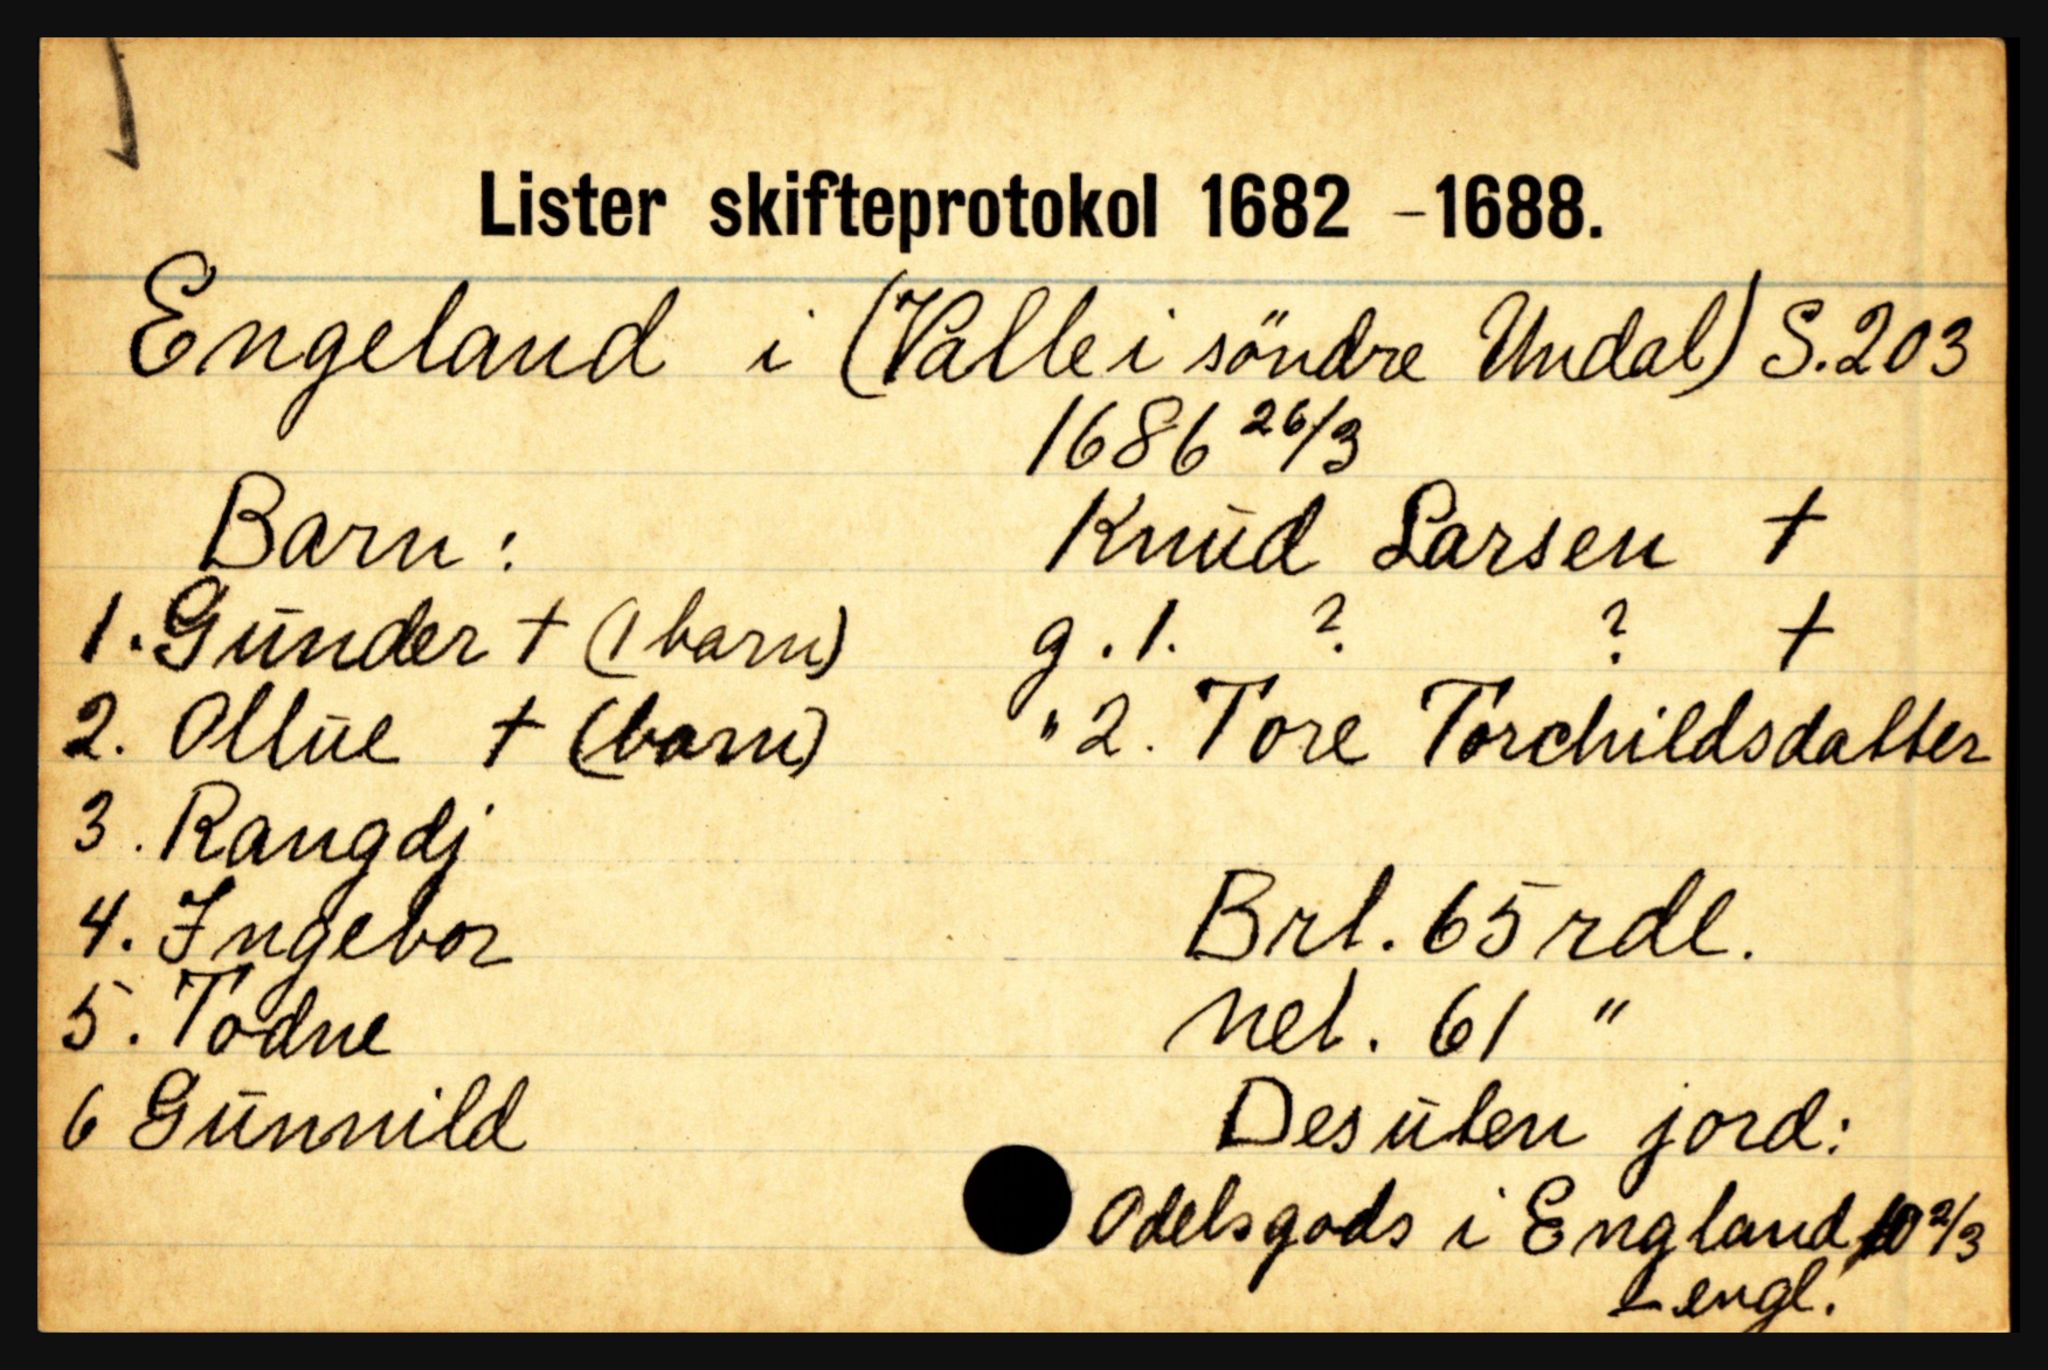 Lister skifteprotokol 1682 - 1688.
Engeland i (Valle i söndre Undal) S. 203
1686 26/3
Barn:
1. Gunder † (1 barn)
2. Ollue † (barn)
3. Rangdj
4. Ingebor
5. Todne
6 Gunnild
Knud Larsen †
g. 1. ? ? †
" 2. Tore Torchildsdatter
Brt. 65 rdl.
net. 61 "
Desuten jord:
Odelsgods i England 10 2/3
engl.